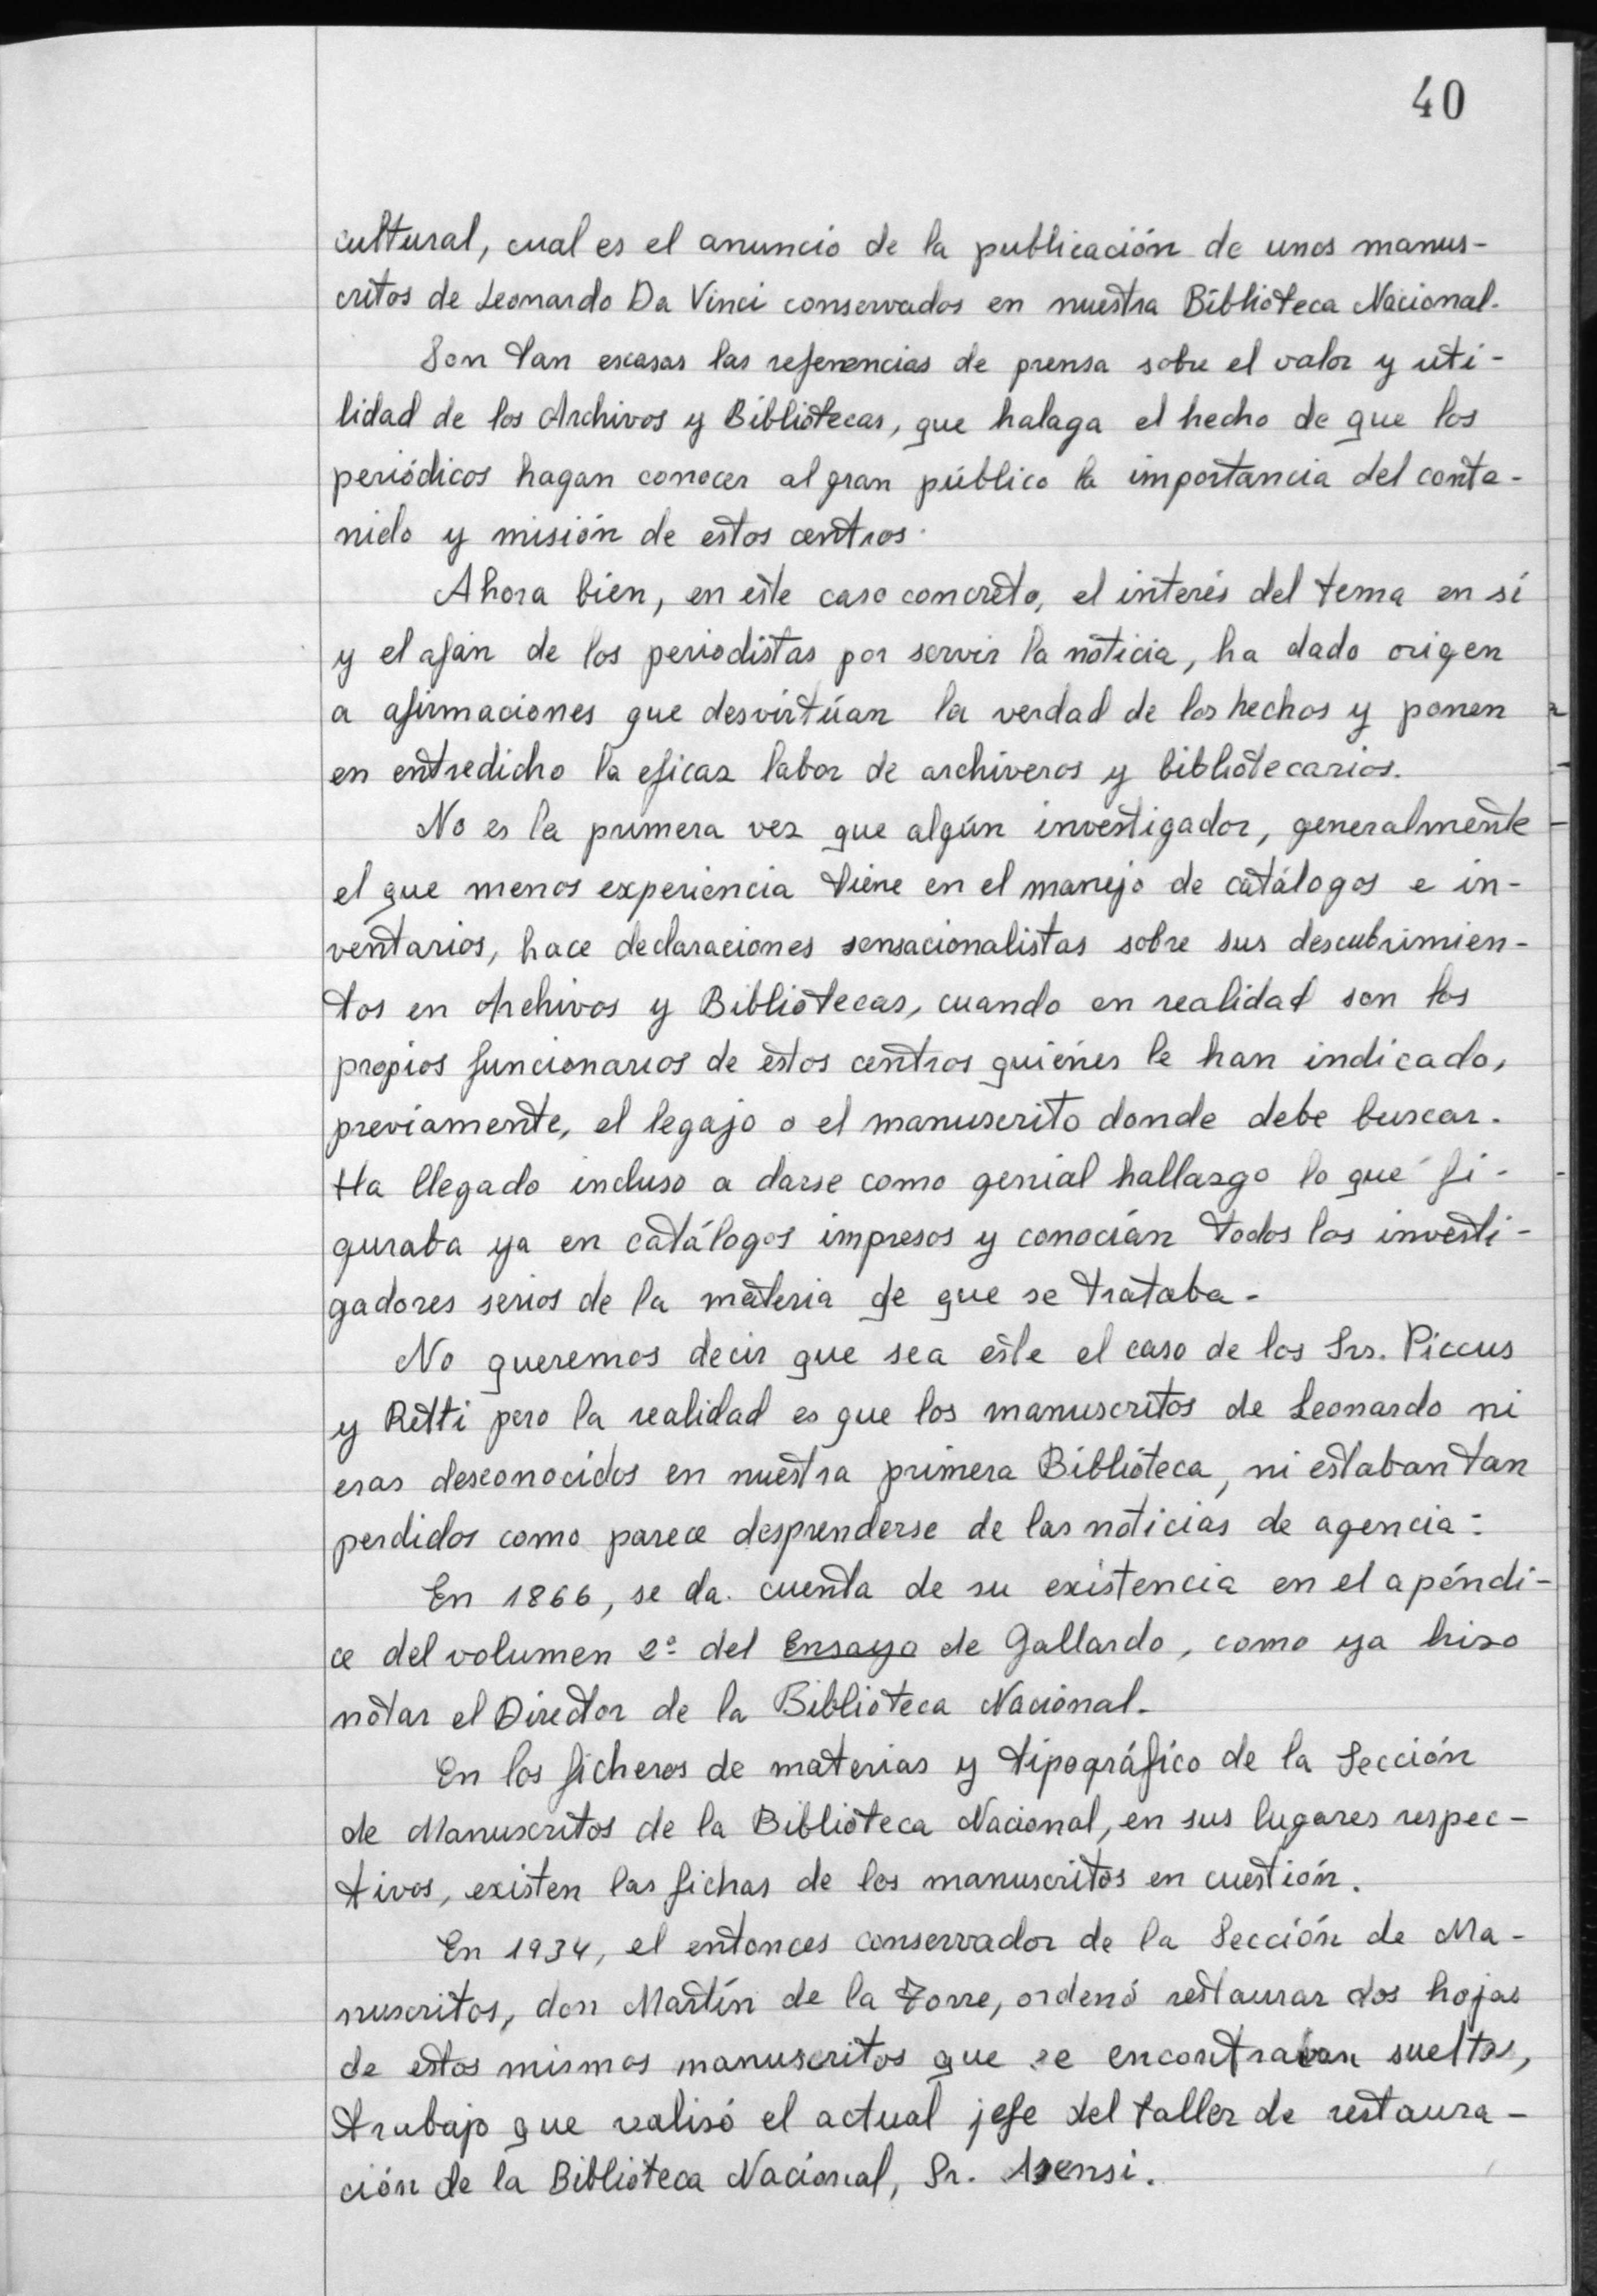 40
cultural, cual es el anuncio de la publicación de unos manus-
critos de Leonardo Da Vinci conservados en nuestra Biblioteca Nacional.
Son tan escasas las referencias de prensa sobre el valor y uti-
lidad de los Archivos y Bibliotecas, que halaga el hecho de que los
periódicos hagan conocer al gran público la importancia del conte-
nido y misión de estos centros.
Ahora bien, en este caso concreto, el interés del tema en sí
y el afán de los periodistas por servir la noticia, ha dado origen
a afirmaciones que desvirtúan la verdad de los hechos y ponen
en entredicho la eficaz labor de archiveros y bibliotecarios.
No es la primera vez que algún investigador, generalmente
el que menos experiencia tiene en el manejo de catálogos e in-
ventarios, hace declaraciones sensacionalistas sobre sus descubrimien-
tos en Archivos y Bibliotecas, cuando en realidad son los
propios funcionarios de estos centros quienes le han indicado,
previamente, el legajo o el manuscrito donde debe buscar.
Ha llegado incluso a darse como genial hallazgo lo que fi-
guraba ya en catálogos impresos y conocían todos los investi-
gadores serios de la materia de que se trataba.
No queremos decir que sea este el caso de los Srs. Piccus
y Retti pero la realidad es que los manuscritos de Leonardo ni
eras desconocidos en nuestra primera Biblioteca, ni estaban tan
perdidos como parece desprenderse de las noticias de agencia:
En 1866, se da cuenta de su existencia en el apéndi-
ce del volumen 2º del Ensayo de Gallardo, como ya hizo
notar el Director de la Biblioteca Nacional.
En los ficheros de materias y tipográfico de la Sección
de Manuscritos de la Biblioteca Nacional, en sus lugares respec-
tivos, existen las fichas de los manuscritos en cuestión.
En 1934, el entonces conservador de la Sección de Ma-
nuscritos, don Martín de la Torre, ordenó restaurar dos hojas
de estos mismos manuscritos que se encontraban sueltas,
trabajo que realizó el actual jefe del taller de restaura-
ción de la Biblioteca Nacional, Sr. Asensi.